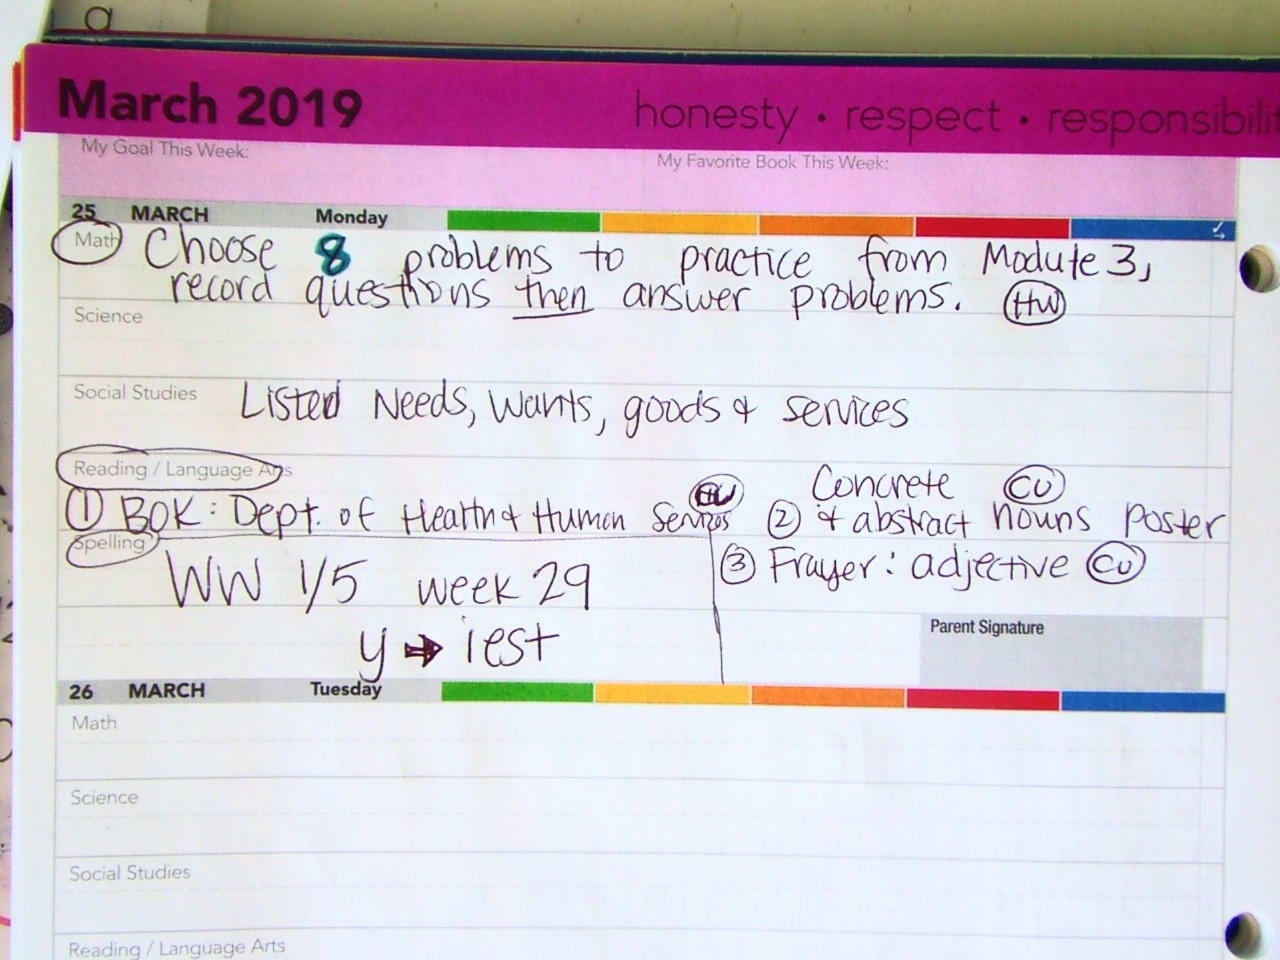 a
March 2019 honesty · respect · responsibili
My Goal This Week: My Favorite Book This Week:
25 MARCH Monday
Math Choose 8 problems to practice from Module 3,
record questions then answer problems. HW
Science
Social Studies Listed Needs, Wants, goods & services
Reading / Language Arts
① BOK: Dept. of Health & Human Services HW
Concrete CU
② & abstract nouns poster
Spelling
WW 1/5 week 29
③ Frayer: adjective CU
y → iest
Parent Signature
26 MARCH Tuesday
Math
Science
Social Studies
Reading / Language Arts